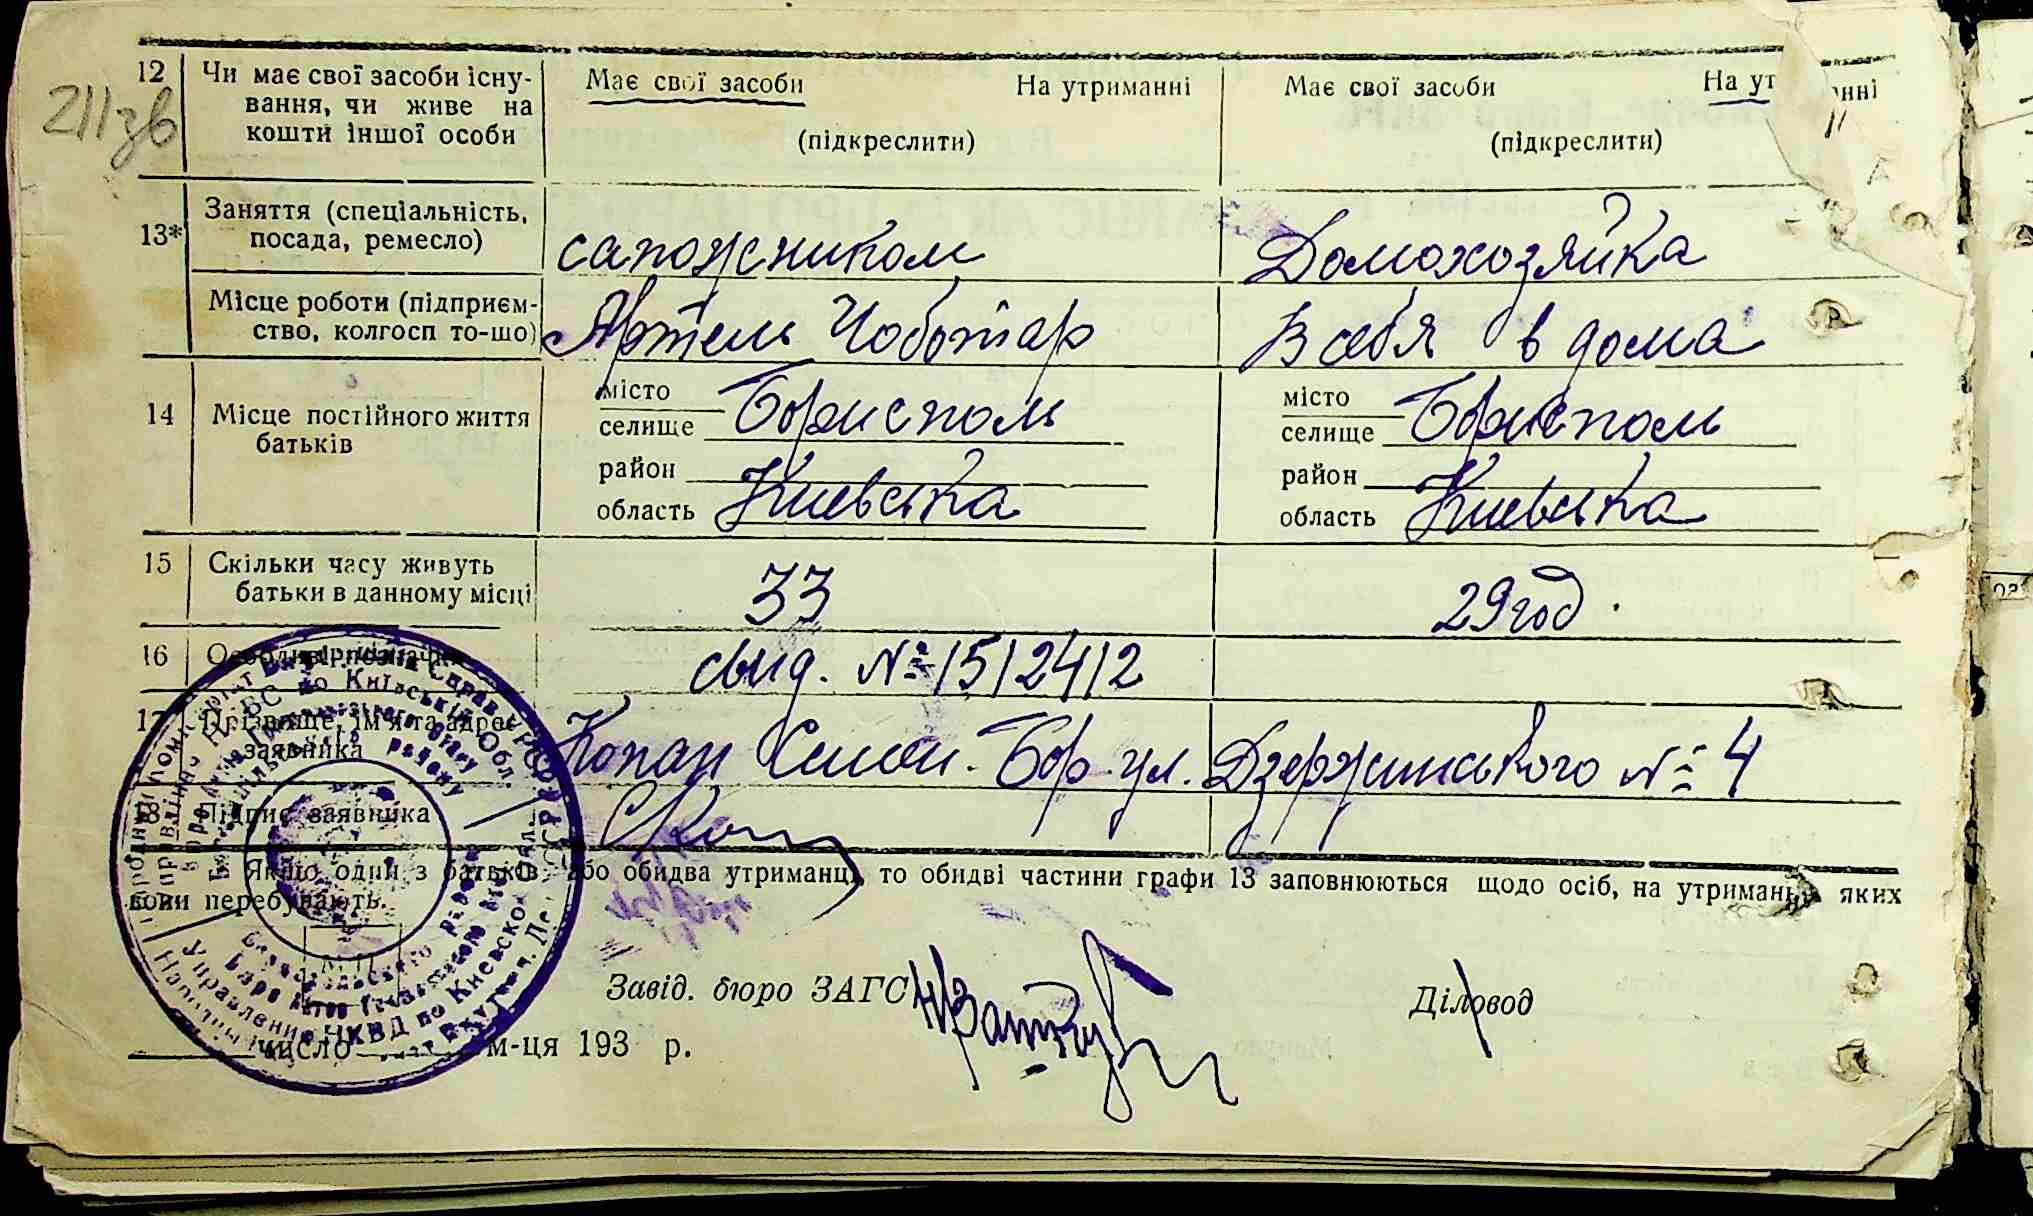 211зв
12 Чи має свої засоби існу- Має свої засоби На утриманні Має свої засоби На ут нні
вання, чи живе на
кошти іншої особи (підкреслити) (підкреслити)
13* Заняття (спеціальність, посада, ремесло) сапожником Домохозяйка
Місце роботи (підприєм-
ство, колгосп то-що) Артель Чоботар В себя в дома
14 Місце постійного життя
батьків
місто
селище Борисполь
район
область Киевська
місто
селище Борисполь
район
область Киевська
15 Скільки часу живуть
батьки в данному місці 33 29 год.
16 Особливі позначки свид. № 1512412
17 Прізвище, ім'я та адрес
заявника Копан Бор. ул. Дзержинського № 4
18 Підпис заявника
Якщо один з батьків, або обидва утриманці, то обидві частини графи 13 заповнюються щодо осіб, на утриманні яких
вони перебувають.
Завід. бюро ЗАГС Діловод
число м-ця 193 р.
Управление НКВД по Киевской